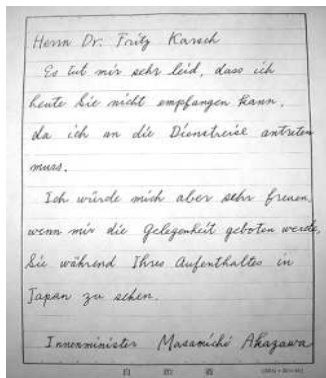 Herrn Dr. Fritz Karsch
Es tut mir sehr leid, dass ich
heute Sie nicht empfangen kann,
da ich an die Dienstreise antreten
muss.
Ich würde mich aber sehr freuen,
wenn mir die Gelegenheit geboten werde,
Sie während Ihres Aufenthaltes in
Japan zu sehen.
Innenminister Masamichi Akazawa
自 治 省